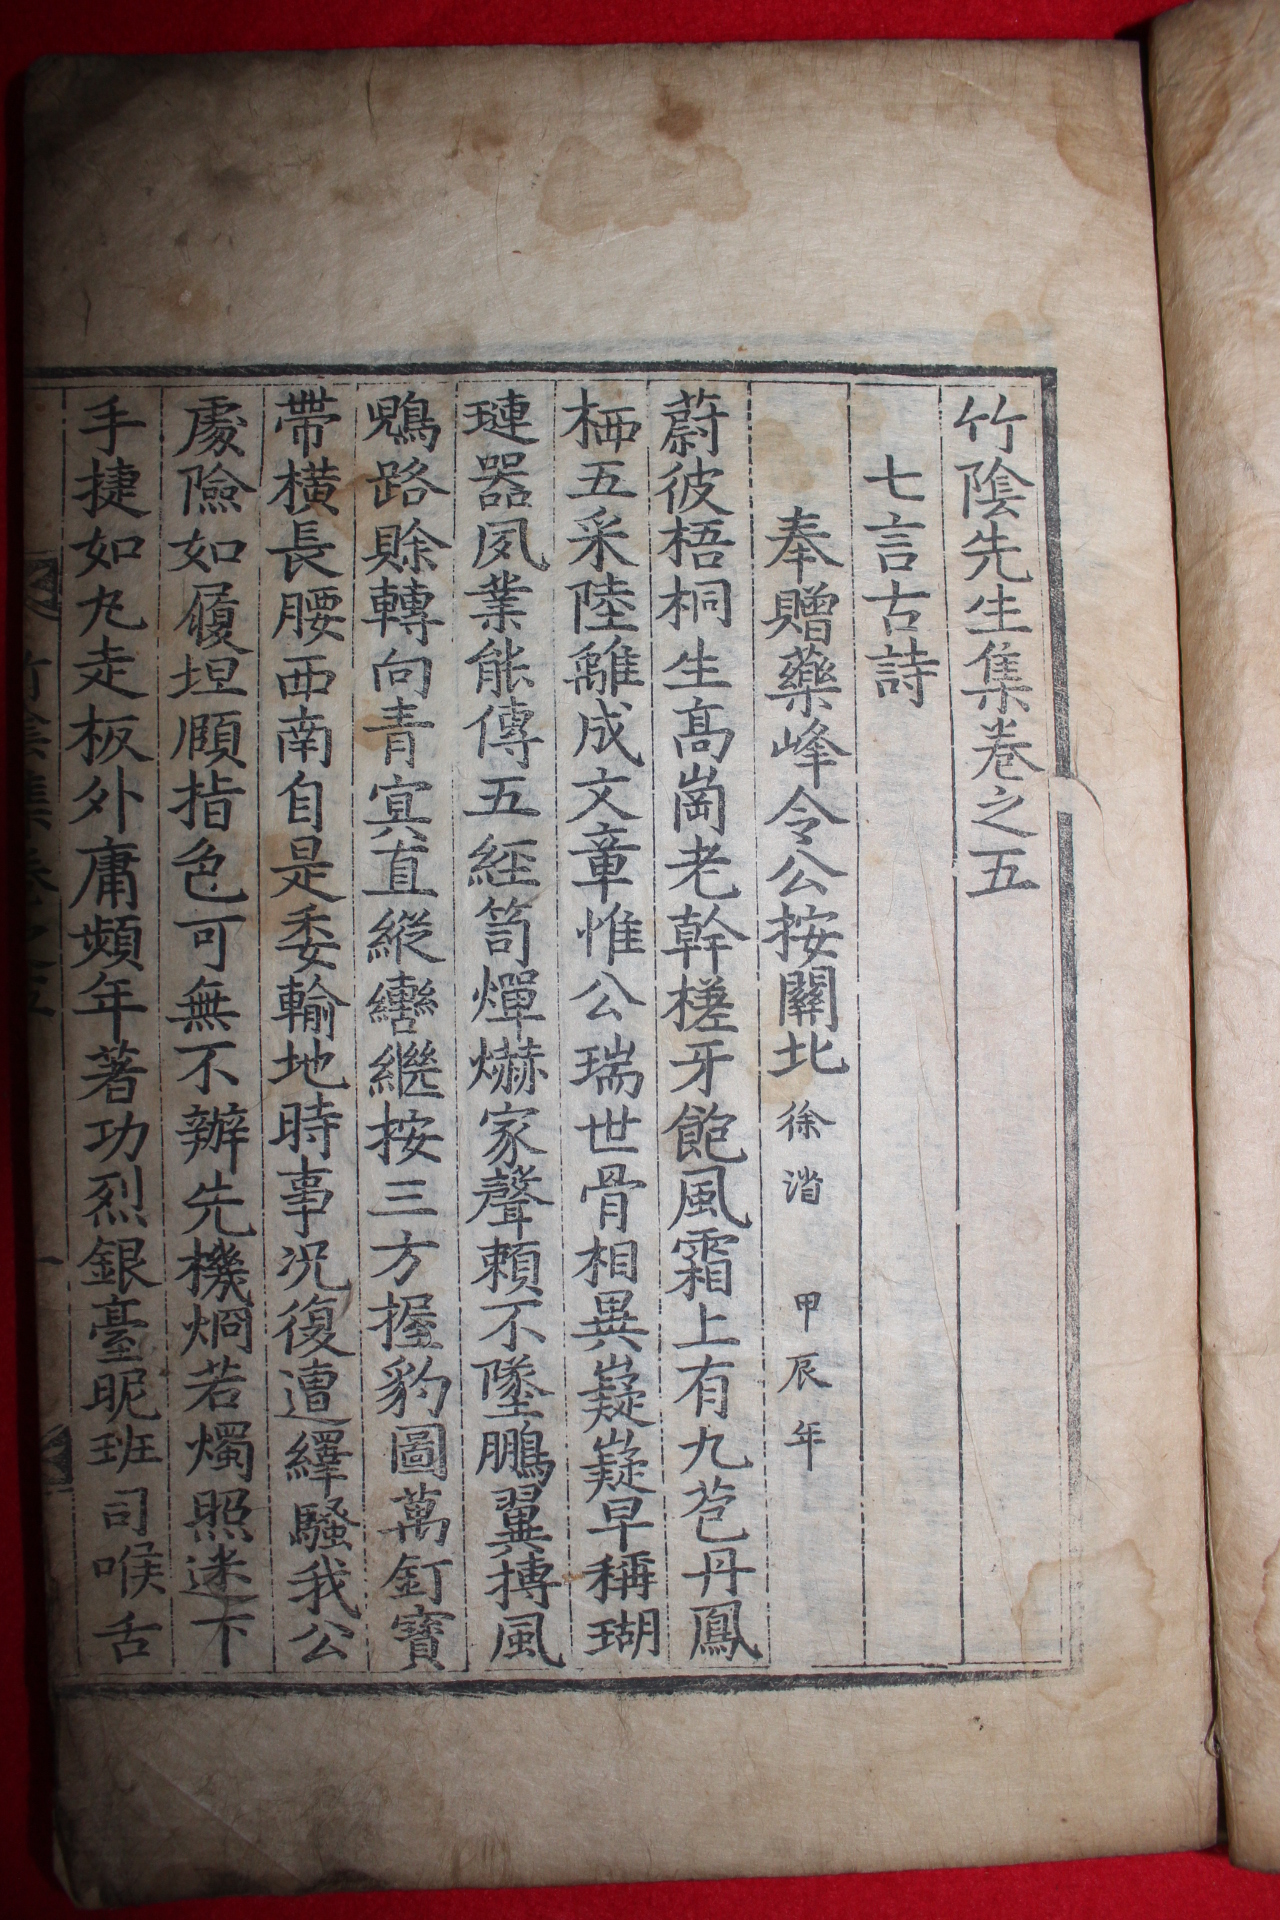 竹陰先生集卷之五
七言古詩
奉贈藥峰令公按關北 徐渻 甲辰年
蔚彼梧桐生高崗老幹槎牙飽風霜上有九苞丹鳳
栖五采陸離成文章惟公瑞世骨相異嶷嶷早稱瑚
璉器夙業能傳五經笥燀爀家聲賴不墜鵬翼搏風
鷃路賖轉向青冥直縱轡繼按三方握豹圖萬釘寶
帶橫長腰西南自是委輸地時事况復遭繹騷我公
處險如履坦頤指色可無不辦先機烱若燭照迷下
手捷如丸走板外庸頻年著功烈銀臺昵班司喉舌
竹陰集卷之五 一